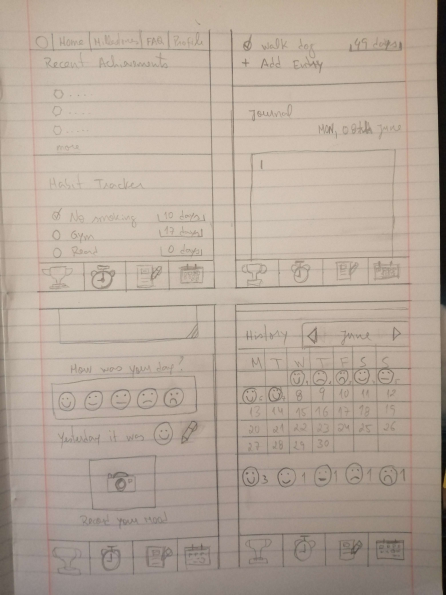 Home FAQ Profile
Recent Achievements
....
....
....
more
Habit Tracker
No smoking 10 days
Gym 17 days
Read 0 days
walk dog 49 days
+ Add Entry
Journal
MON, June
How was your day?
Yesterday it was
your Mood
History June
M T W T F S S
8 9 10 11 12
13 14 15 16 17 18 19
20 21 22 23 24 25 26
27 28 29 30
3 1 1 1 1